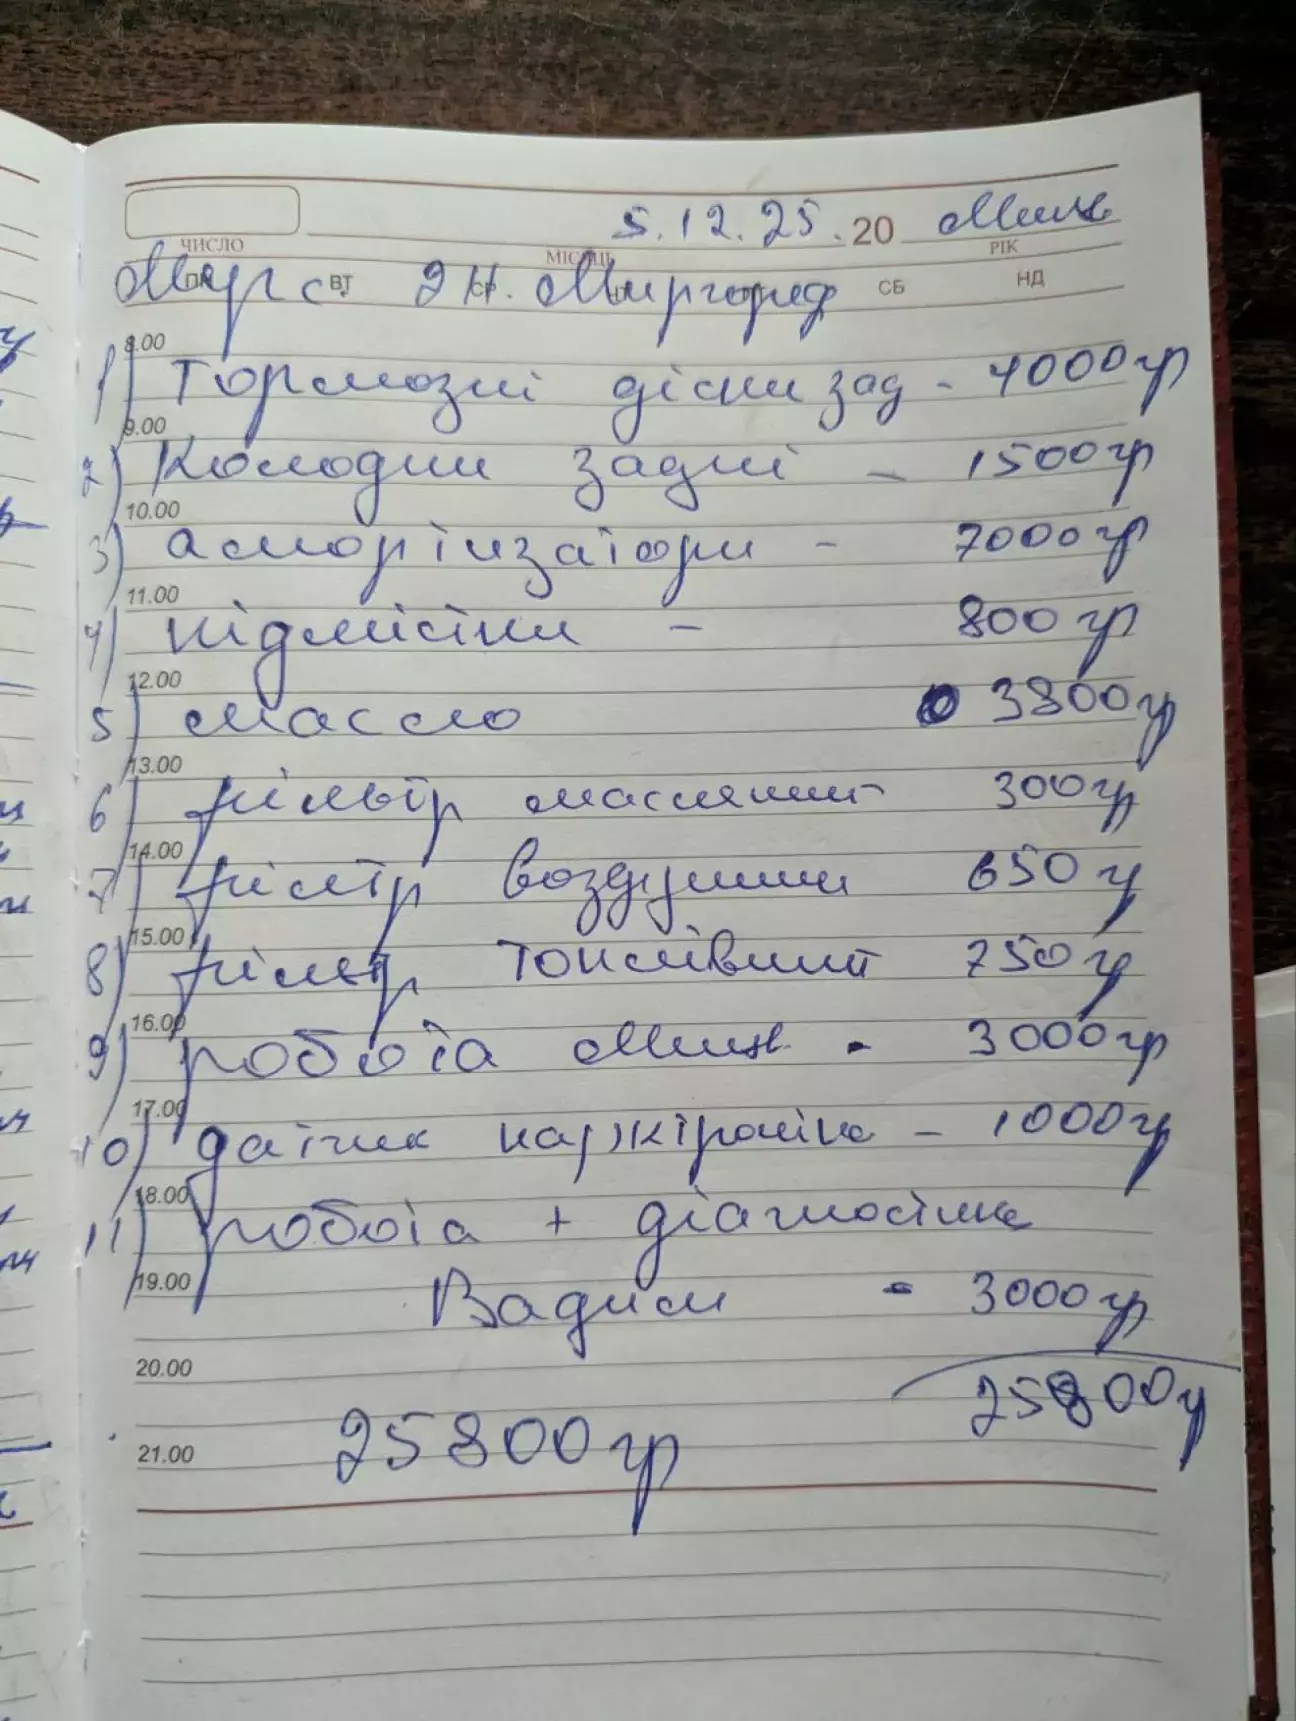 5.12.25. 20 Миш
ЧИСЛО МІСЯЦЬ РІК
Мурс 2н. Миргород
ВТ СР СБ НД
8.00
1) тормозні діски зад - 4000гр
9.00
2) Колодки задні - 1500гр
10.00
3) амортизатори - 7000гр
11.00
4) підмістки - 800гр
12.00
5) массло 3800гр
13.00
6) фільтр масляний 300гр
14.00
7) філтр воздушни 650г
15.00
8) фільтр топлівний 750г
16.00
9) робота Миш - 3000гр
17.00
10) датчик паркtроніка - 1000гр
18.00
11) робота + діагностика
19.00
Вадим - 3000гр
20.00
25800г
25800гр
21.00